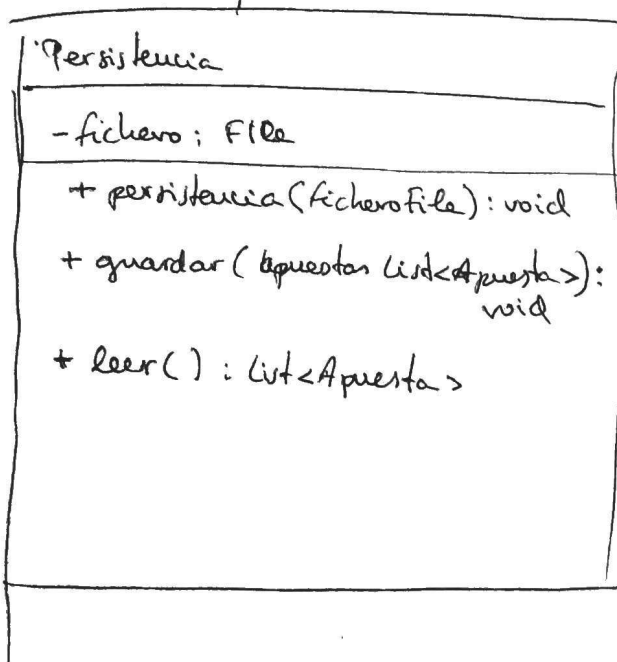 Persistencia
- fichero: File
+ persistencia (fichero File): void
+ guardar ( apuestas List<Apuesta>):
void
+ leer() : List<Apuesta>